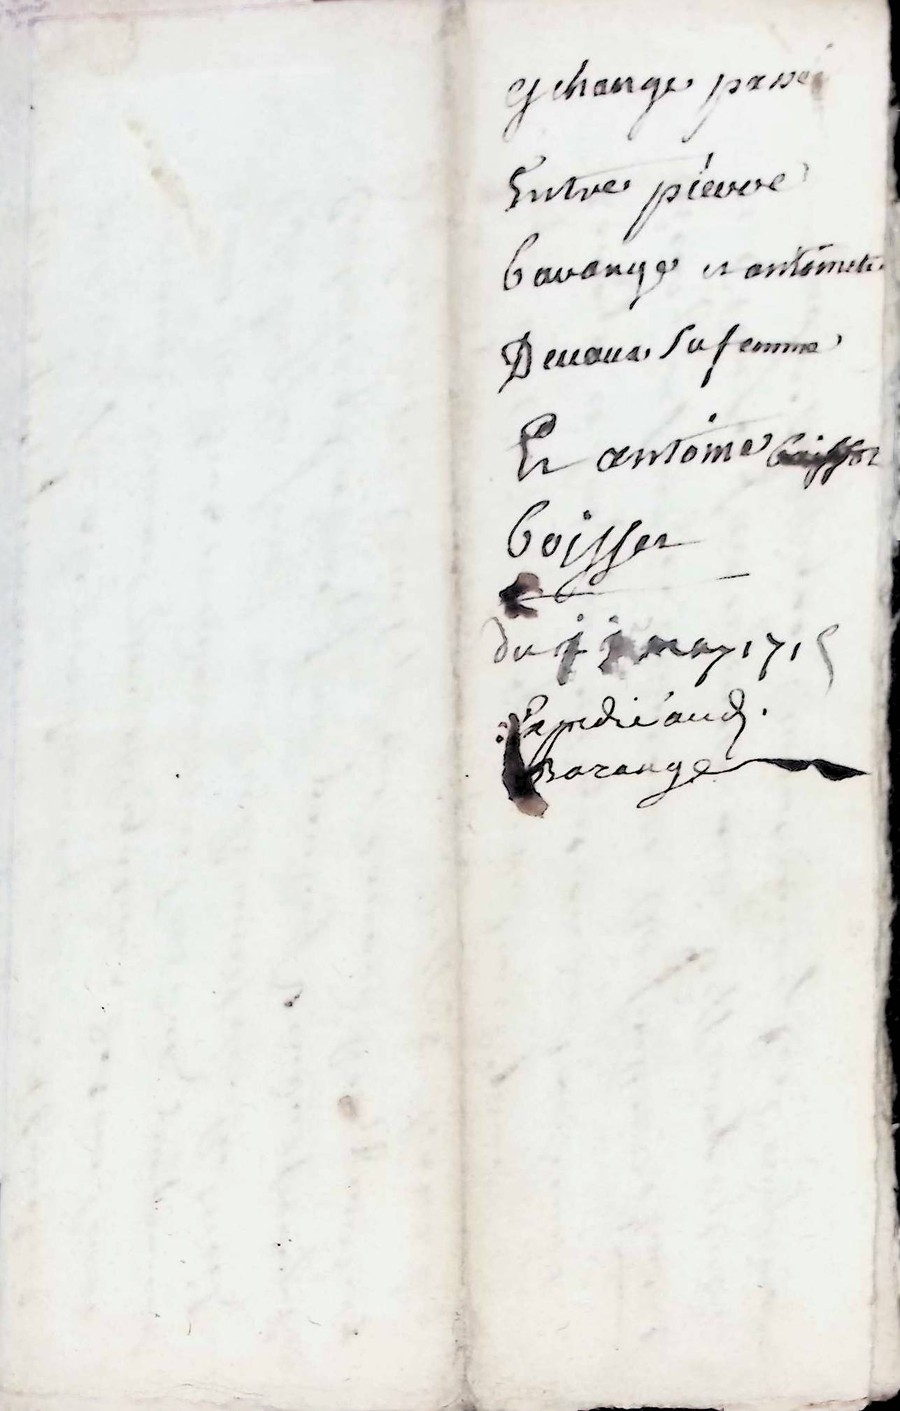 Echange passé
Entre pierre
barange et antoinete
Devaux sa femme
Et antoine
boisset
du may 1715
Expedié aud.
Barange